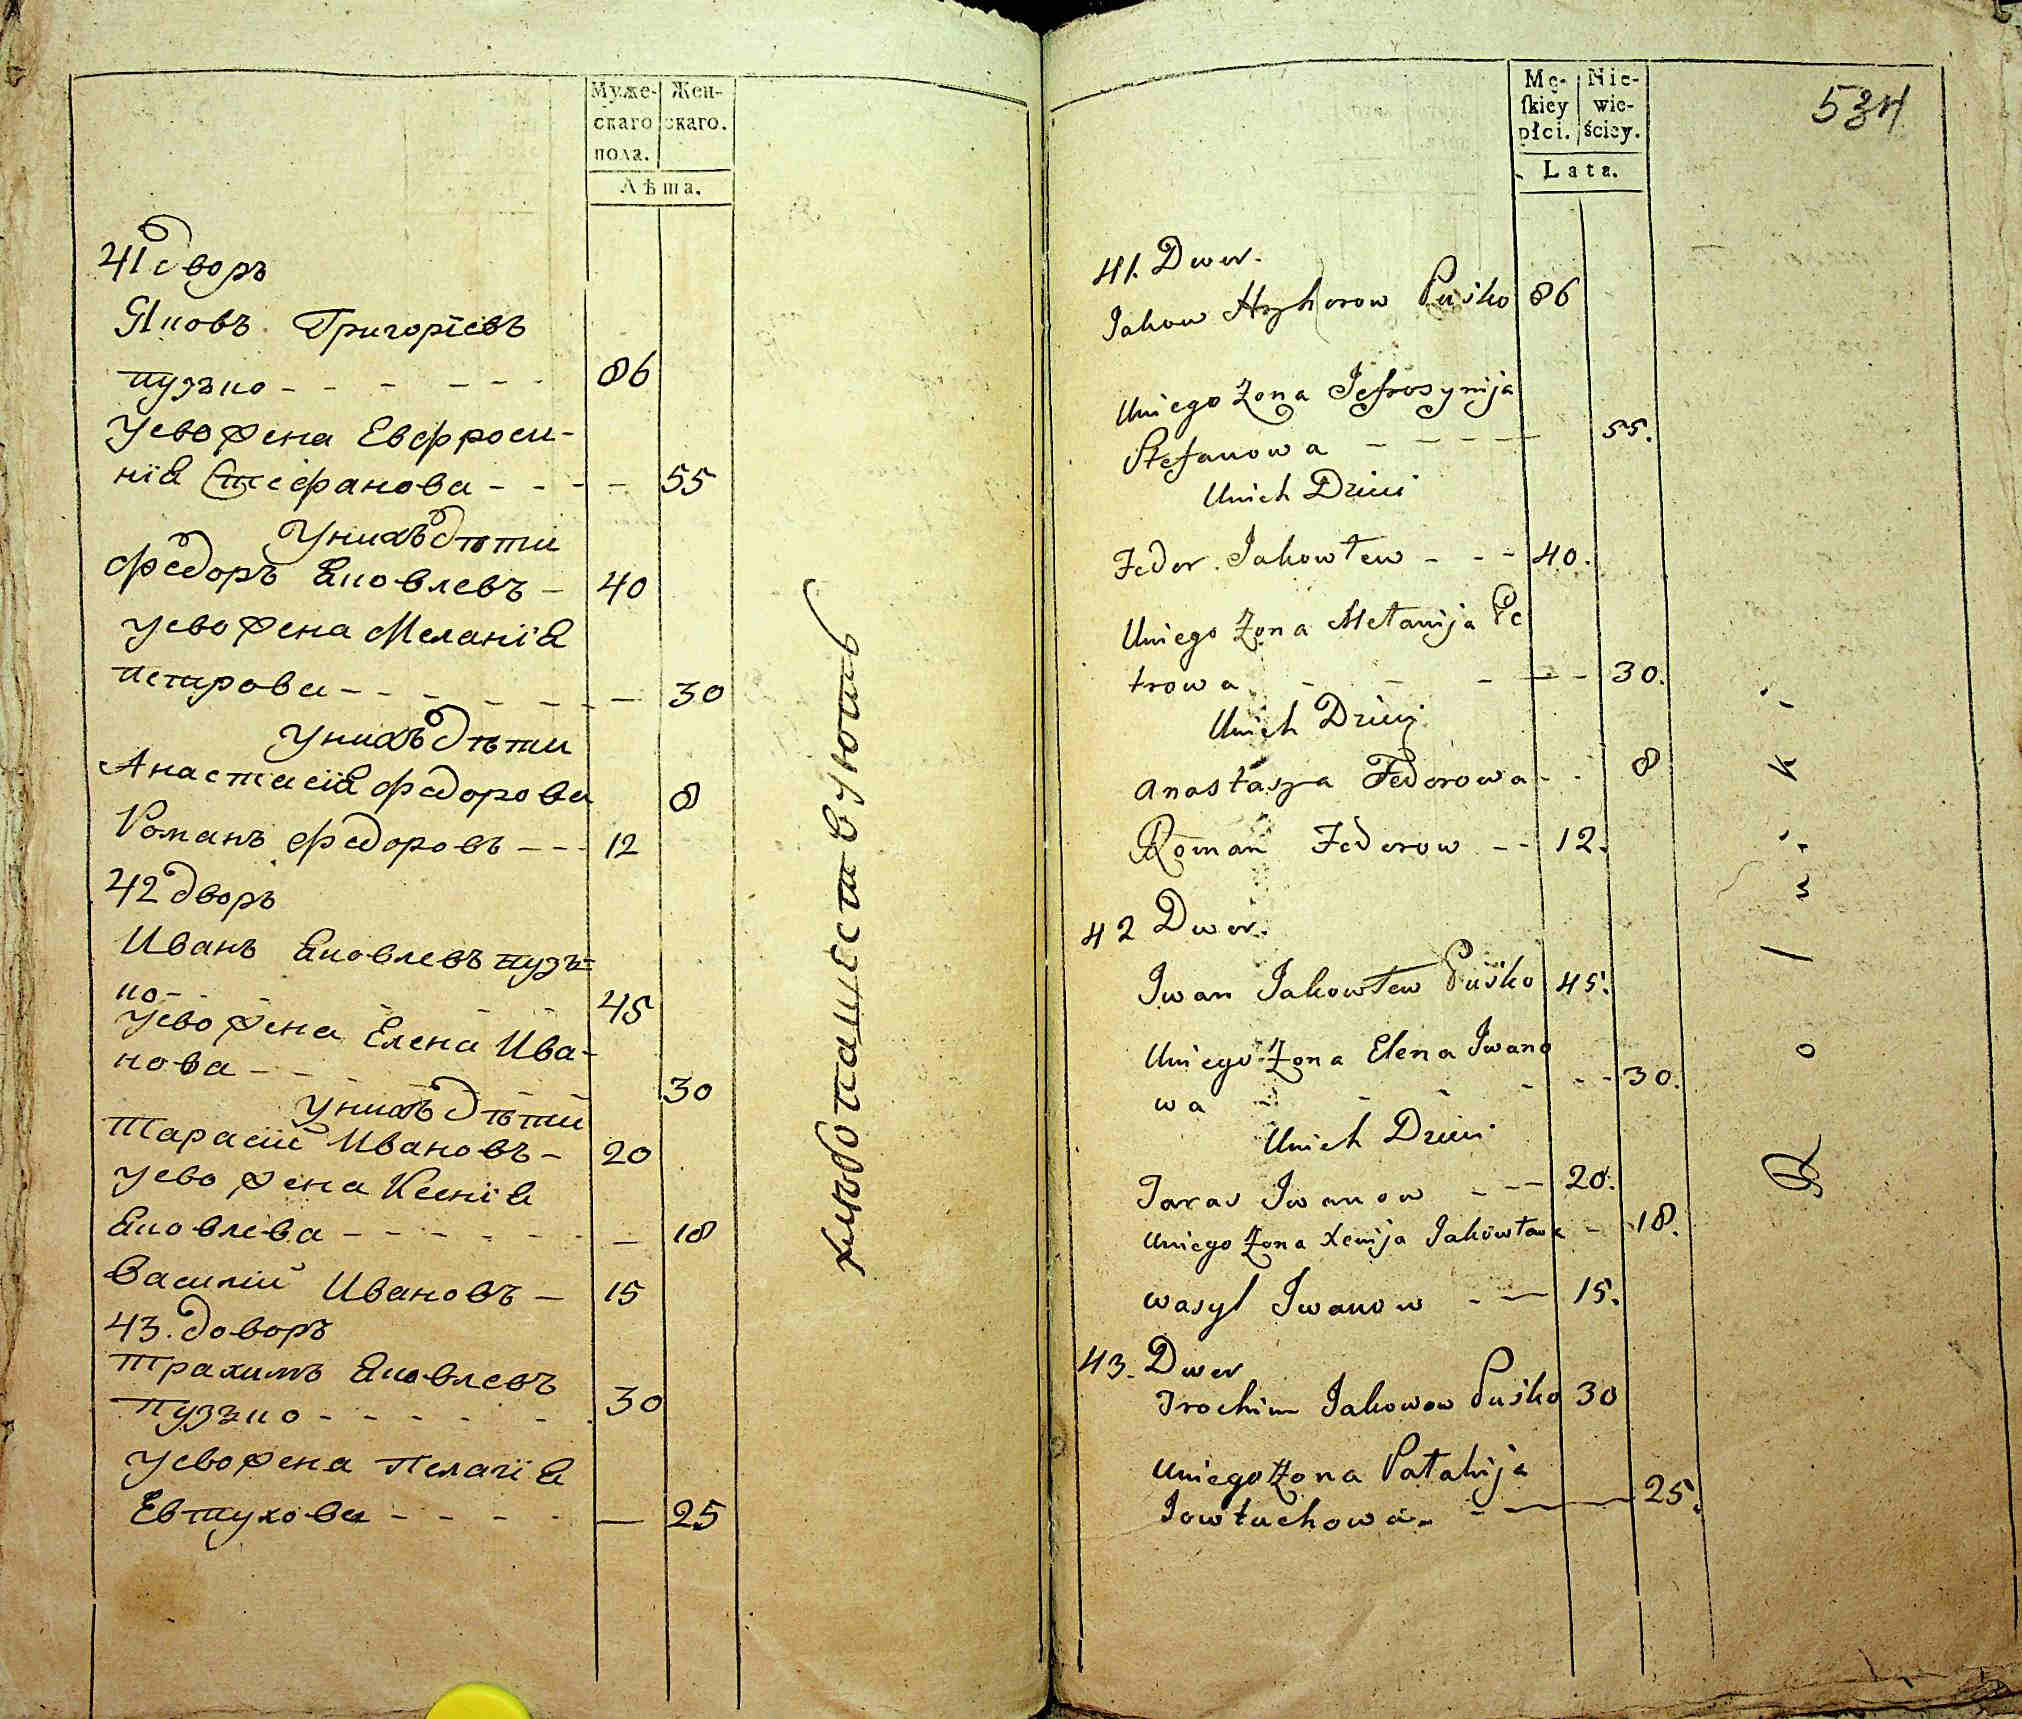 Муже-
скаго
пола.
Жен-
скаго.
Лѣта.
41 дворъ
Яковъ Григорїевъ
пузько - - - - - - 86
Уево Жена Евфроси-
нія Стефанова - - - - 55
Унихъ Дѣти
Федоръ Яковлевъ - 40
уево Жена Меланія
петрова - - - - - - - 30
Унихъ Дѣти
Анастасія Федорова 8
Романъ Федоровъ - - - 12
42 дворъ
Иванъ Яковлевъ пузь=
ко - - 45
уево Жена Елена Ива-
нова - - 30
Унихъ Дѣти
Тарасій Ивановъ - 20
уево Жена Ксенія
Яковлева - - - - - - - 18
Василий Ивановъ - 15
43. дворъ
Трахимъ Яковлевъ
пузько - - - - - - 30
уево Жена Пелагїя
Евтухова - - - - — 25
хлѣбопашествуютъ
534
Mę-
ſkiey
płci.
Nie-
wie-
ściey.
Lata.
41. Dwor.
Jakow Hryhorow Puśko 86
Uniego Żona Jefrosynija
Stefanowa - - - - - 55.
Unich Dzieci
Fedor Jakowłew - - - 40.
Uniego Żona Mełanija Pe
trowa - - - - - 30.
Unich Dzieci
Anastasya Fedorowa - - 8
Roman Fedorow - - 12.
42 Dwor.
Iwan Jakowłew Puśko 45.
Uniego Żona Elena Iwano
wa - - - - - - 30.
Unich Dzieci
Taras Iwanow - - - 20.
Uniego Żona Xenija Jakowława - 18.
Wasyl Iwanow - - 15.
43. Dwor
Trochim Jakowow Puśko 30
Uniego Żona Pałahija
Jowtuchowa - - 25.
Rolniki